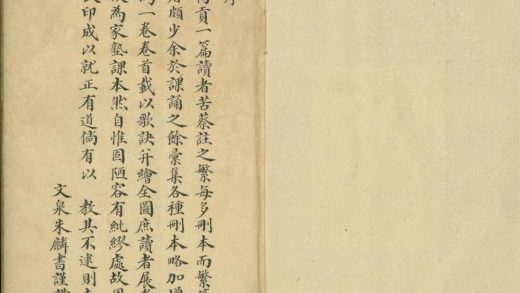 序
貢一篇讀者苦蔡註之繁每多刪本而繁
頗少余於課誦之餘彙集各種刪本略加增
一卷卷首載以歌訣并繪全圖庶讀者展
為家塾課本然自惟固陋容有紕繆處故
印成以就正有道倘有以 教其不逮則
文泉朱麟書謹識